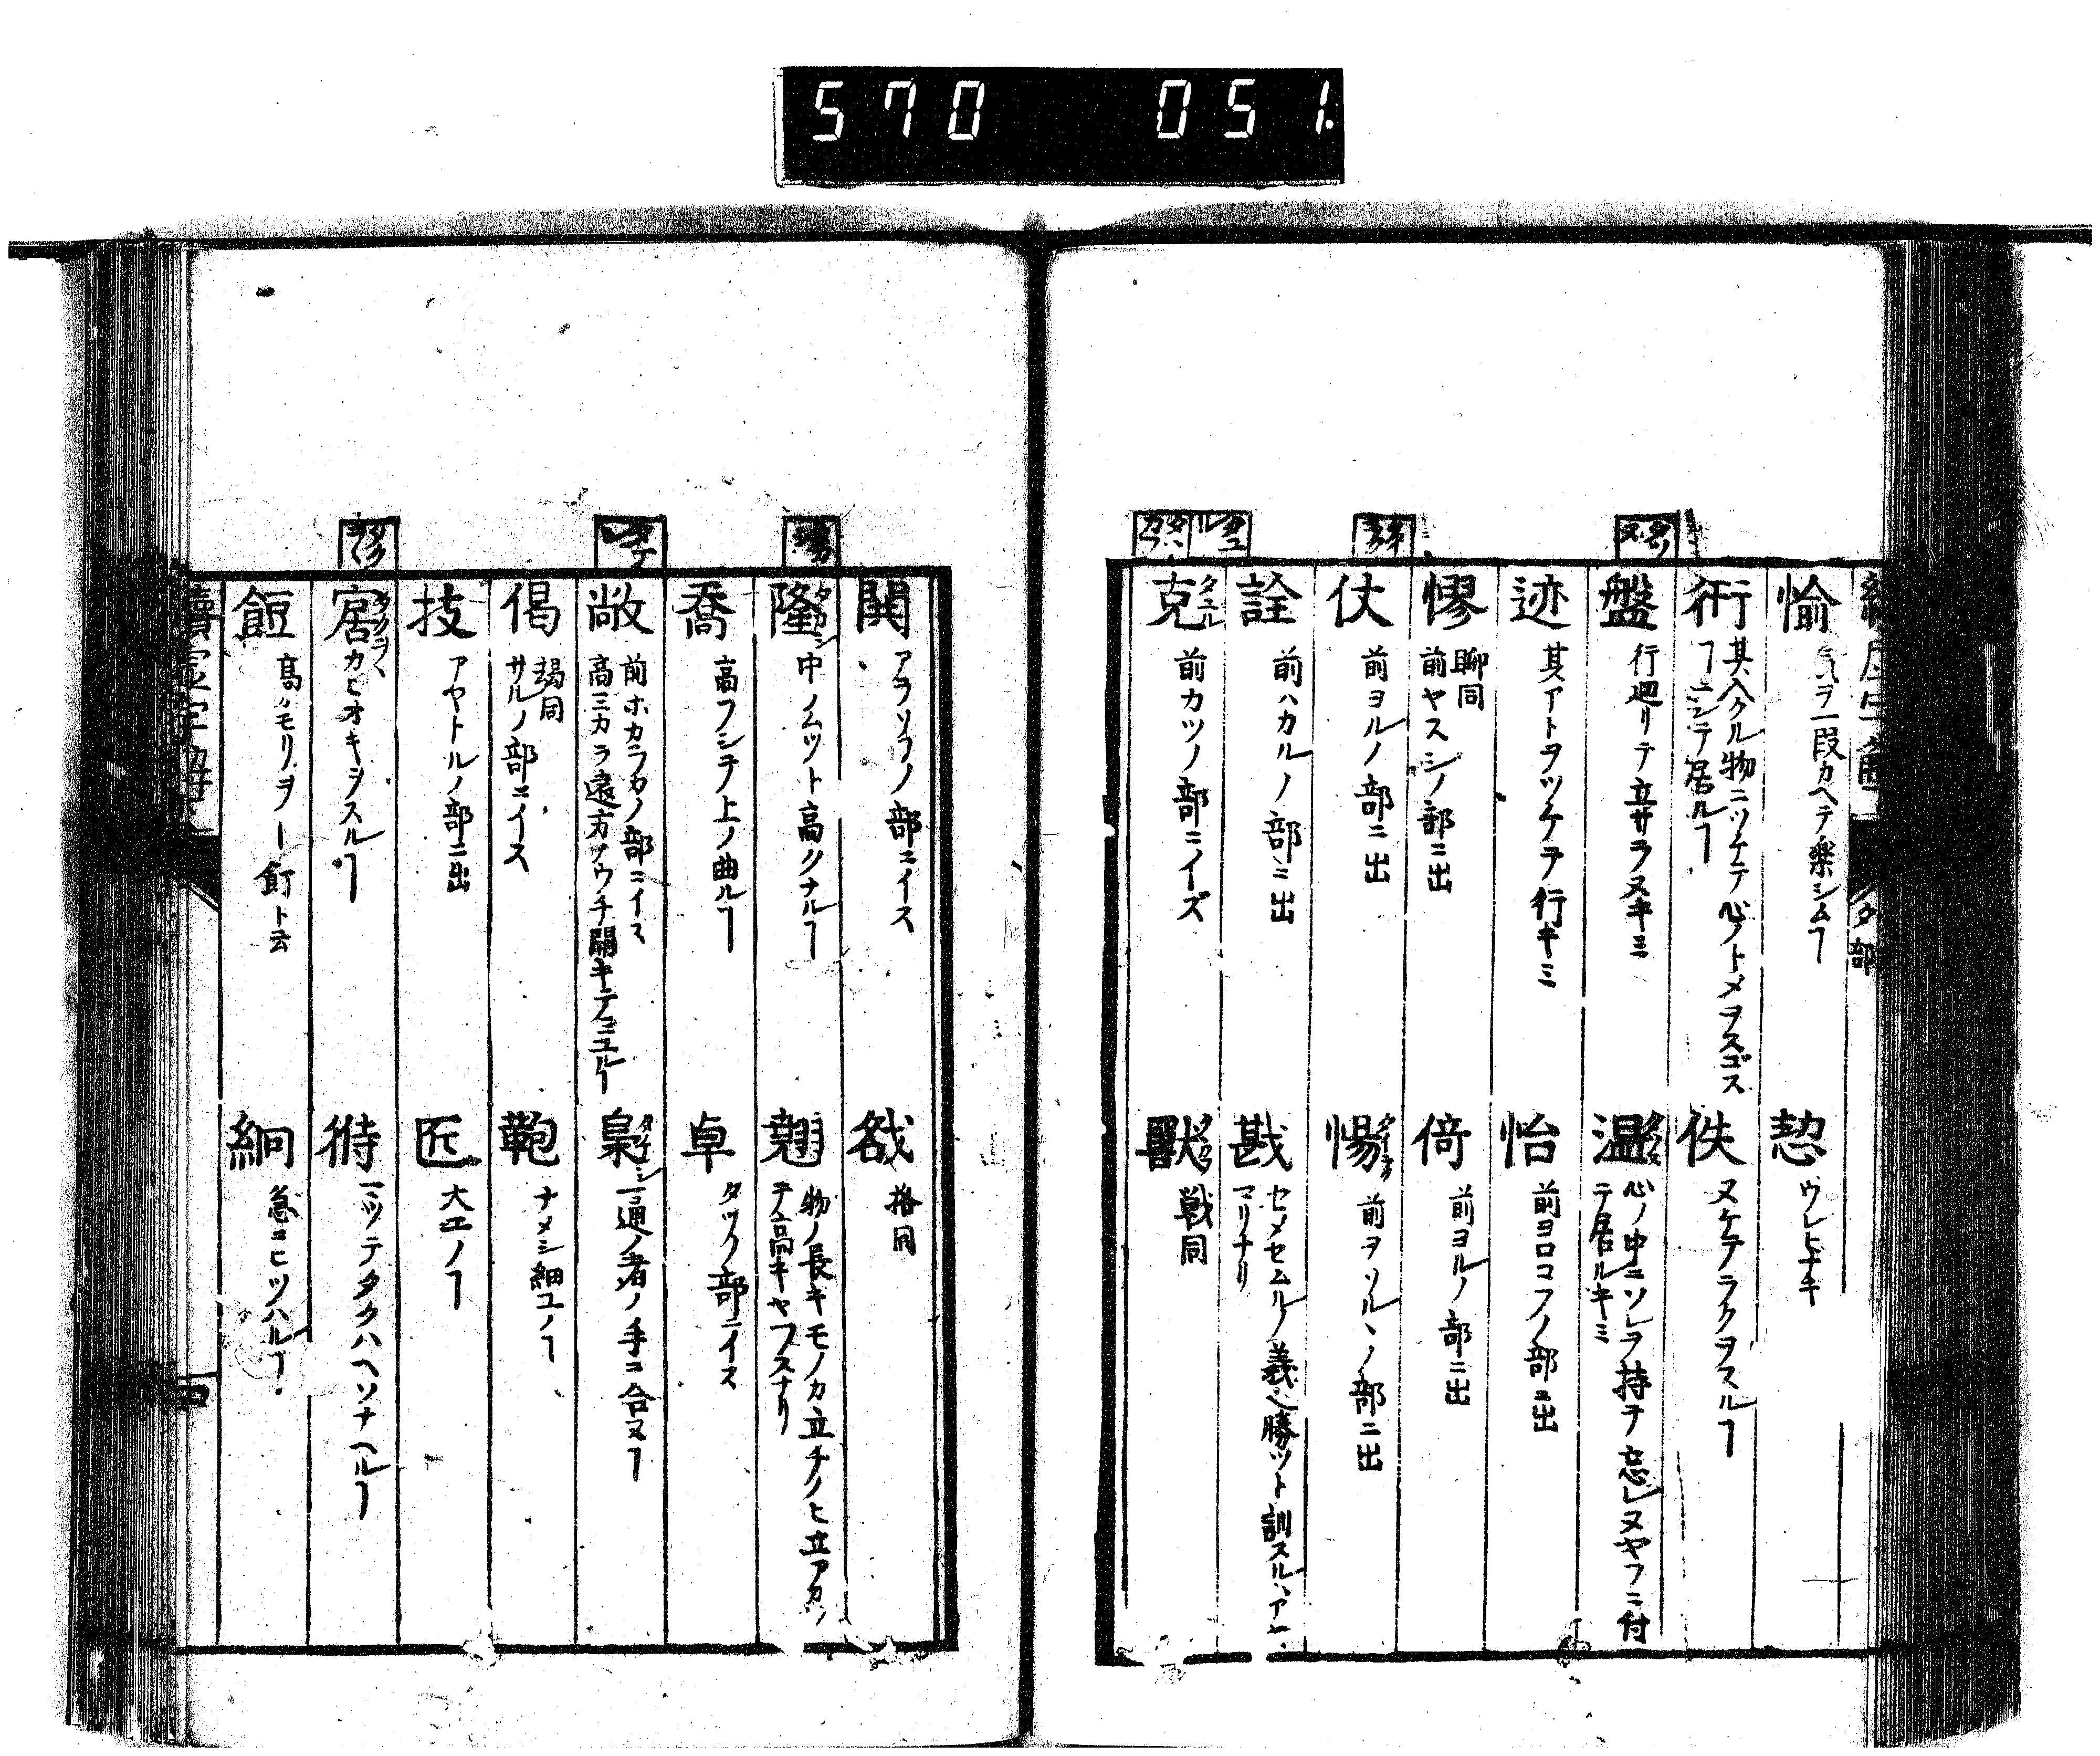 570 051.
タ部
愉 気ヲ一段カヘテ楽シムヿ
愸 ウレヒナキ
衎 其ヘクル物ニツケテ心ノトメヲスゴス
ヿニシテ居ルヿ
佚 ヌケテラクヲスルヿ
盤 行廻リテ立サラヌキミ
温 心ノ中ニソレヲ持テ忘レヌヤフニ付
テ居ルキミ
迹 其アトヲツケテ行キミ
怡 前ヨロコフノ部ニ出
憀 聊同
前ヤスシノ部ニ出
倚 前ヨルノ部ニ出
仗 前ヨルノ部ニ出
惕 前ヲソルヽノ部ニ出
詮 前ハカルノ部ニ出
戡 セメセムルノ義也勝ツト訓スルハアヤ
マリナリ
克 タエル 前カツノ部ニイズ
戰同
鬨 アラソフノ部ニイス
敋 格同
隆 タカシ 中ノムツト高クナルヿ
翹 物ノ長キモノカ立チノヒ立アカツ
テ高キヤフスナリ
喬 高フシテ上ノ曲ルヿ
卓 タツノ部ニイス
敞 前ホカラカノ部ニイス
高ミカラ遠方ノウチ開キテミユルヿ
梟 一通ノ者ノ手ニ合ヌヿ
偈 朅同
サルノ部ニイス
鞄 ナメシ細工ノヿ
技 アヤトルノ部ニ出
匠 大工ノヿ
カヒオキヲスルヿ
偫 一ツツテタクハヘソナヘルヿ
餖 高クモリヲノ一飣ト云
絅 急ニヒツハルヿ
續虚字解